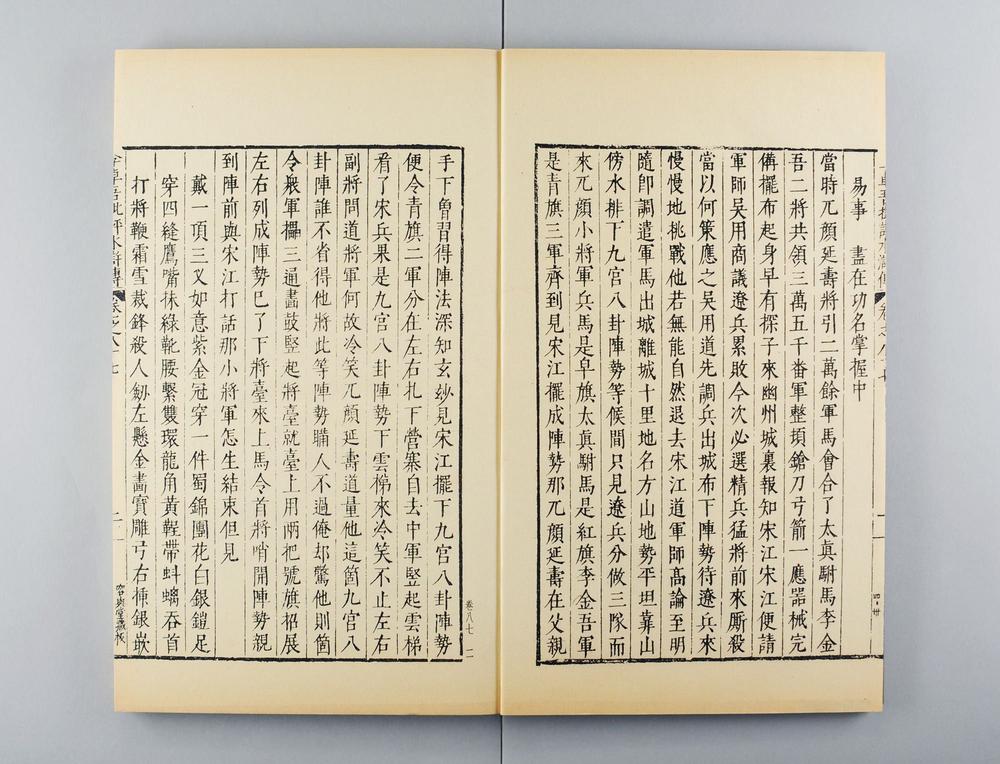 易事 盡在功名掌握中
當時兀顏延壽將引二萬餘軍馬會合了太眞駙馬李金
吾二將共領三萬五千番軍整頓鎗刀弓箭一應器械完
備擺布起身早有探子來幽州城裏報知宋江宋江便請
軍師吳用商議遼兵累敗今次必選精兵猛將前來厮殺
當以何策應之吳用道先調兵出城布下陣勢待遼兵來
慢慢地挑戰他若無能自然退去宋江道軍師髙論至明
隨卽調遣軍馬出城離城十里地名方山地勢平坦靠山
傍水排下九宮八卦陣勢等候間只見遼兵分做三隊而
來兀顏小將軍兵馬是皁旗太眞駙馬是紅旗李金吾軍
是青旗三軍齊到見宋江擺成陣勢那兀顏延壽在父親
卷八七 二
手下曾習得陣法深知玄妙見宋江擺下九宮八卦陣勢
便令青旗二軍分在左右扎下營寨自去中軍竪起雲梯
看了宋兵果是九宮八卦陣勢下雲梯來冷笑不止左右
副將問道將軍何故冷笑兀顏延壽道量他這箇九宮八
卦陣誰不省得他將此等陣勢瞞人不過俺却驚他則箇
令衆軍擂三通畵鼓竪起將臺就臺上用兩把號旗招展
左右列成陣勢巳了下將臺來上馬令首將哨開陣勢親
到陣前與宋江打話那小將軍怎生結束但見
戴一項三叉如意紫金冠穿一件蜀錦團花白銀鎧足
穿四縫鷹嘴抹綠靴腰繫雙環龍角黃鞓帶蚪螭吞首
打將鞭霜雪裁鋒殺人劒左懸金畵寶雕弓右揷銀嵌
李卓吾批評水滸傳 卷之八十七 二
容與堂藏板